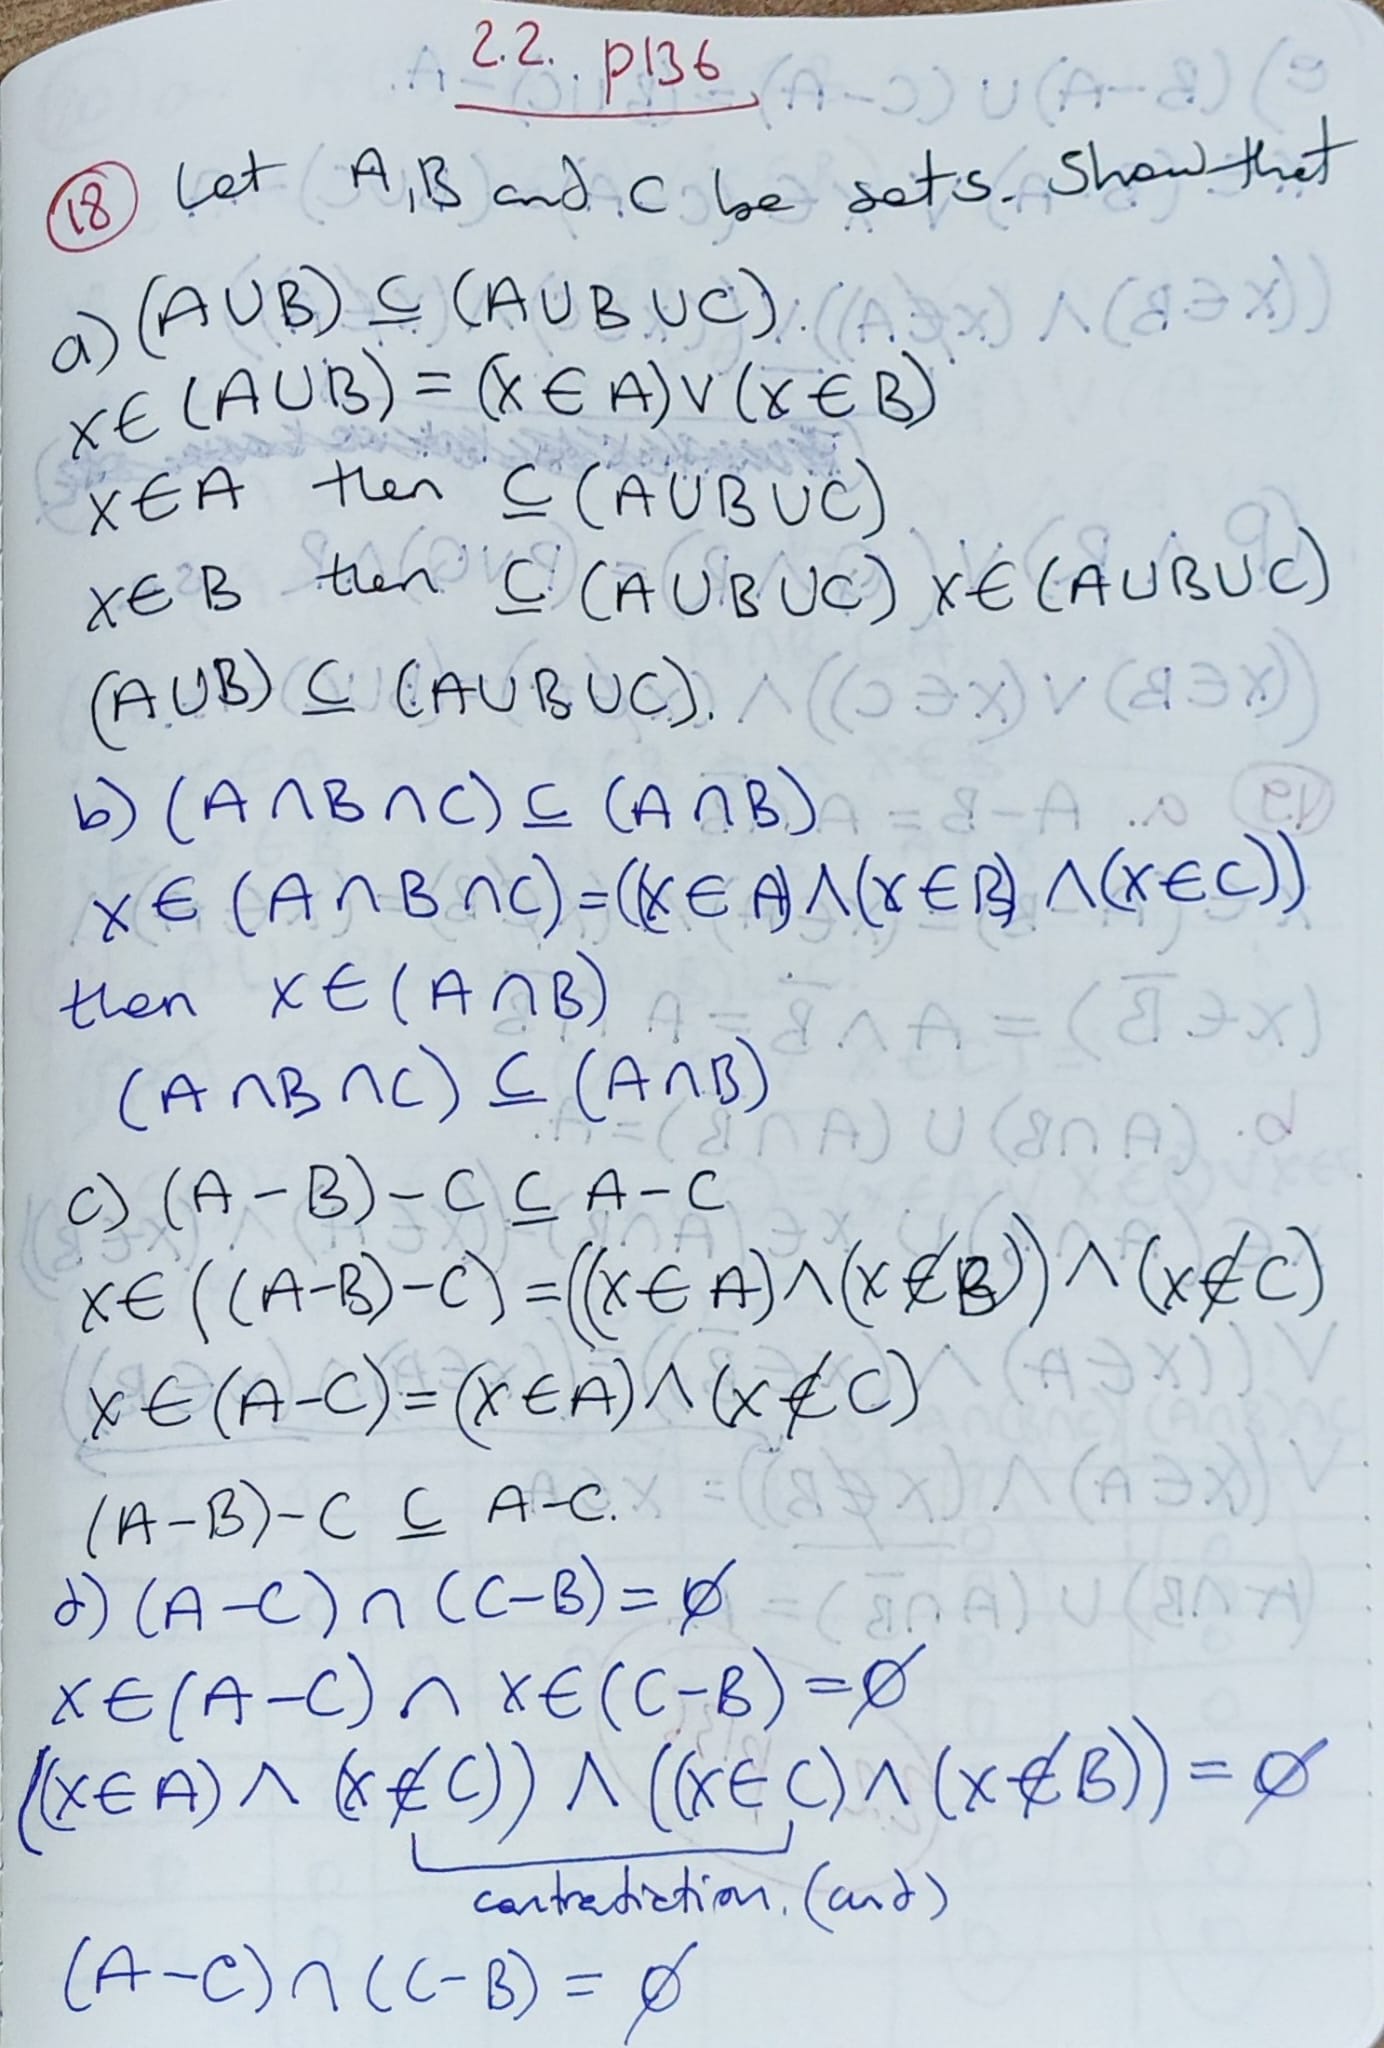 2.2. p136
18 Let A,B and C be sets. Show that
a) (A∪B) ⊆ (A∪B∪C).
x∈(A∪B) = (x∈A)∨(x∈B)
x∈A then ⊆ (A∪B∪C)
x∈B then ⊆ (A∪B∪C) x∈(A∪B∪C)
(A∪B) ⊆ (A∪B∪C).
b) (A∩B∩C) ⊆ (A∩B)
x∈(A∩B∩C)=((x∈A)∧(x∈B)∧(x∈C))
then x∈(A∩B)
(A∩B∩C) ⊆ (A∩B)
c) (A-B)-C ⊆ A-C
x∈((A-B)-C)=((x∈A)∧(x∉B))∧(x∉C)
x∈(A-C)=(x∈A)∧(x∉C)
(A-B)-C ⊆ A-C.
d) (A-C)∩(C-B)=∅
x∈(A-C)∩x∈(C-B)=∅
((x∈A)∧(x∉C))∧((x∈C)∧(x∉B))=∅
contradiction. (and)
(A-C)∩(C-B)=∅